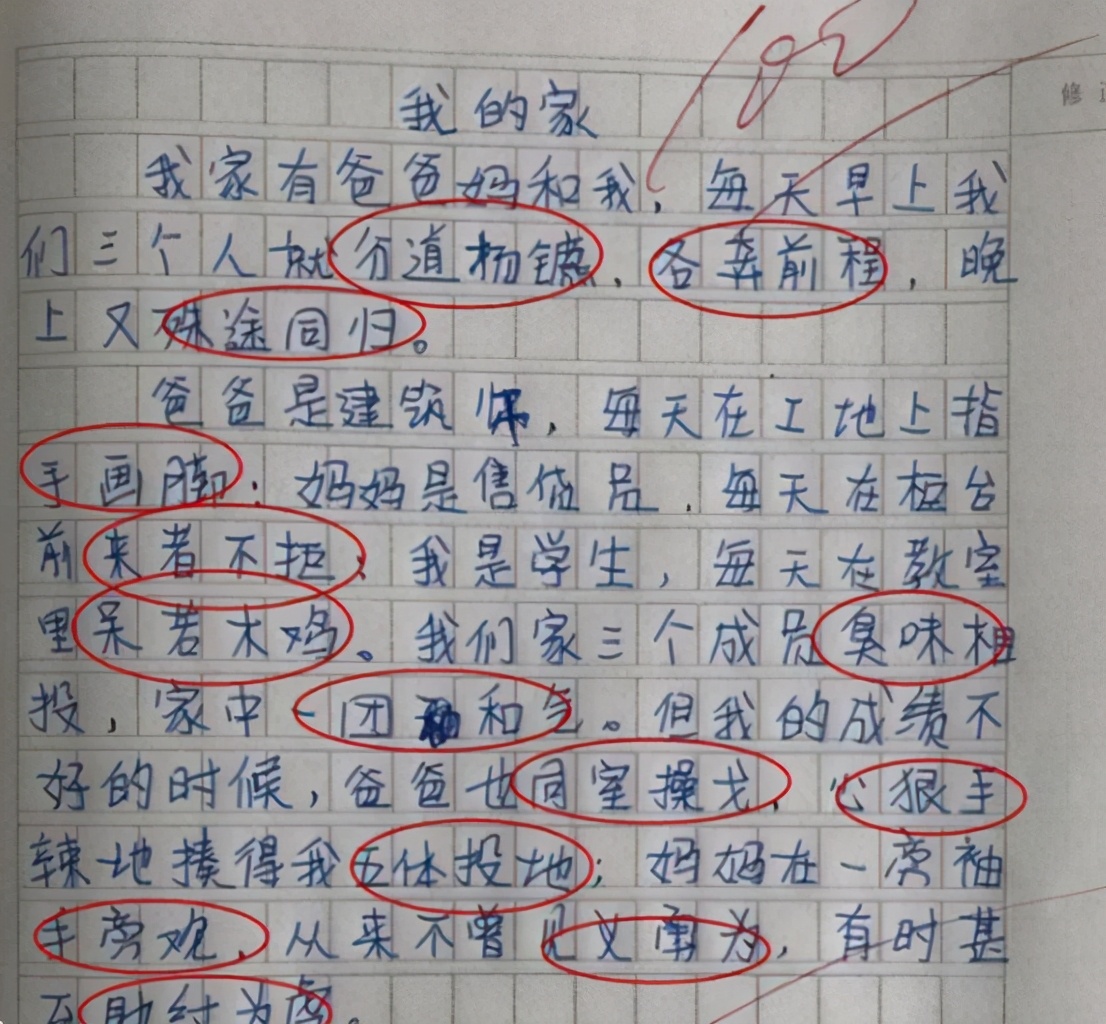 100
修
我的家
我家有爸爸妈和我，每天早上我
们三个人就分道扬镳，各奔前程，晚
上又殊途同归。
爸爸是建筑师，每天在工地上指
手画脚；妈妈是售货员，每天在柜台
前来者不拒；我是学生，每天在教室
里呆若木鸡。我们家三个成员臭味相
投，家中一团和气。但我的成绩不
好的时候，爸爸也同室操戈，心狠手
辣地揍得我五体投地；妈妈在一旁袖
手旁观，从来不曾见义勇为，有时甚
至助纣为虐。